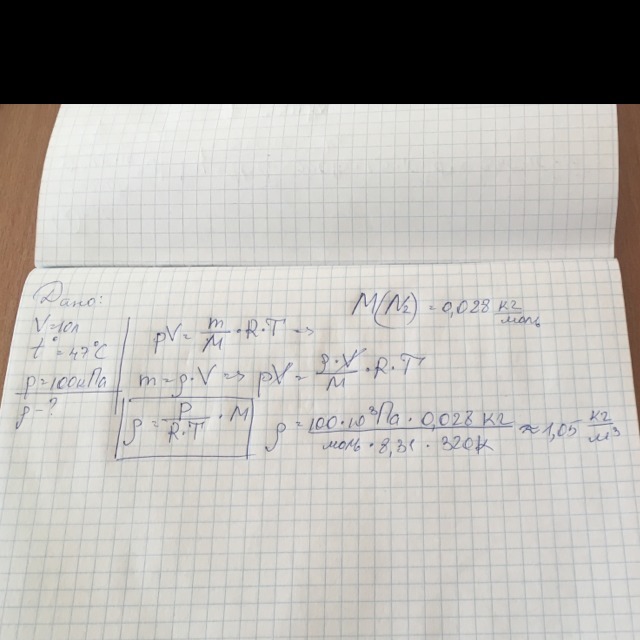 Дано:
V=10л
t°=47°C
p=100кПа
ρ-?
pV = m/M · R·T →
M(N₂) = 0,028 кг/моль
m=ρ·V → pV = ρ·V/M · R·T
ρ = p/R·T · M
ρ = 100·10³Па · 0,028 кг / моль · 8,31 · 320К ≈ 1,05 кг/м³